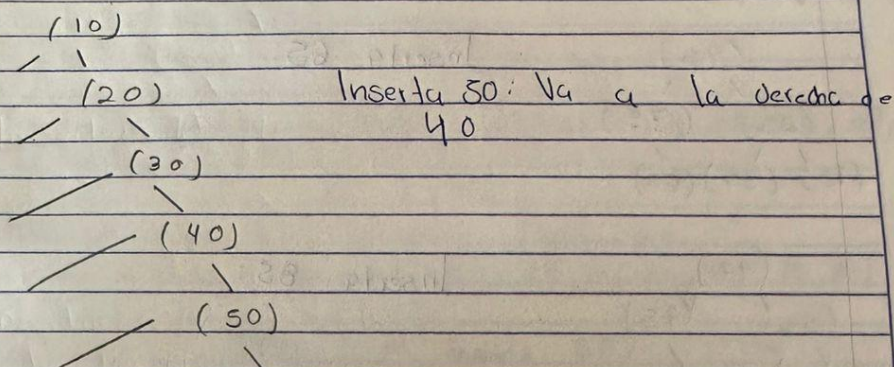 (10)
(20)
Inserta 50: Va a la derecha de
40
(30)
(40)
(50)